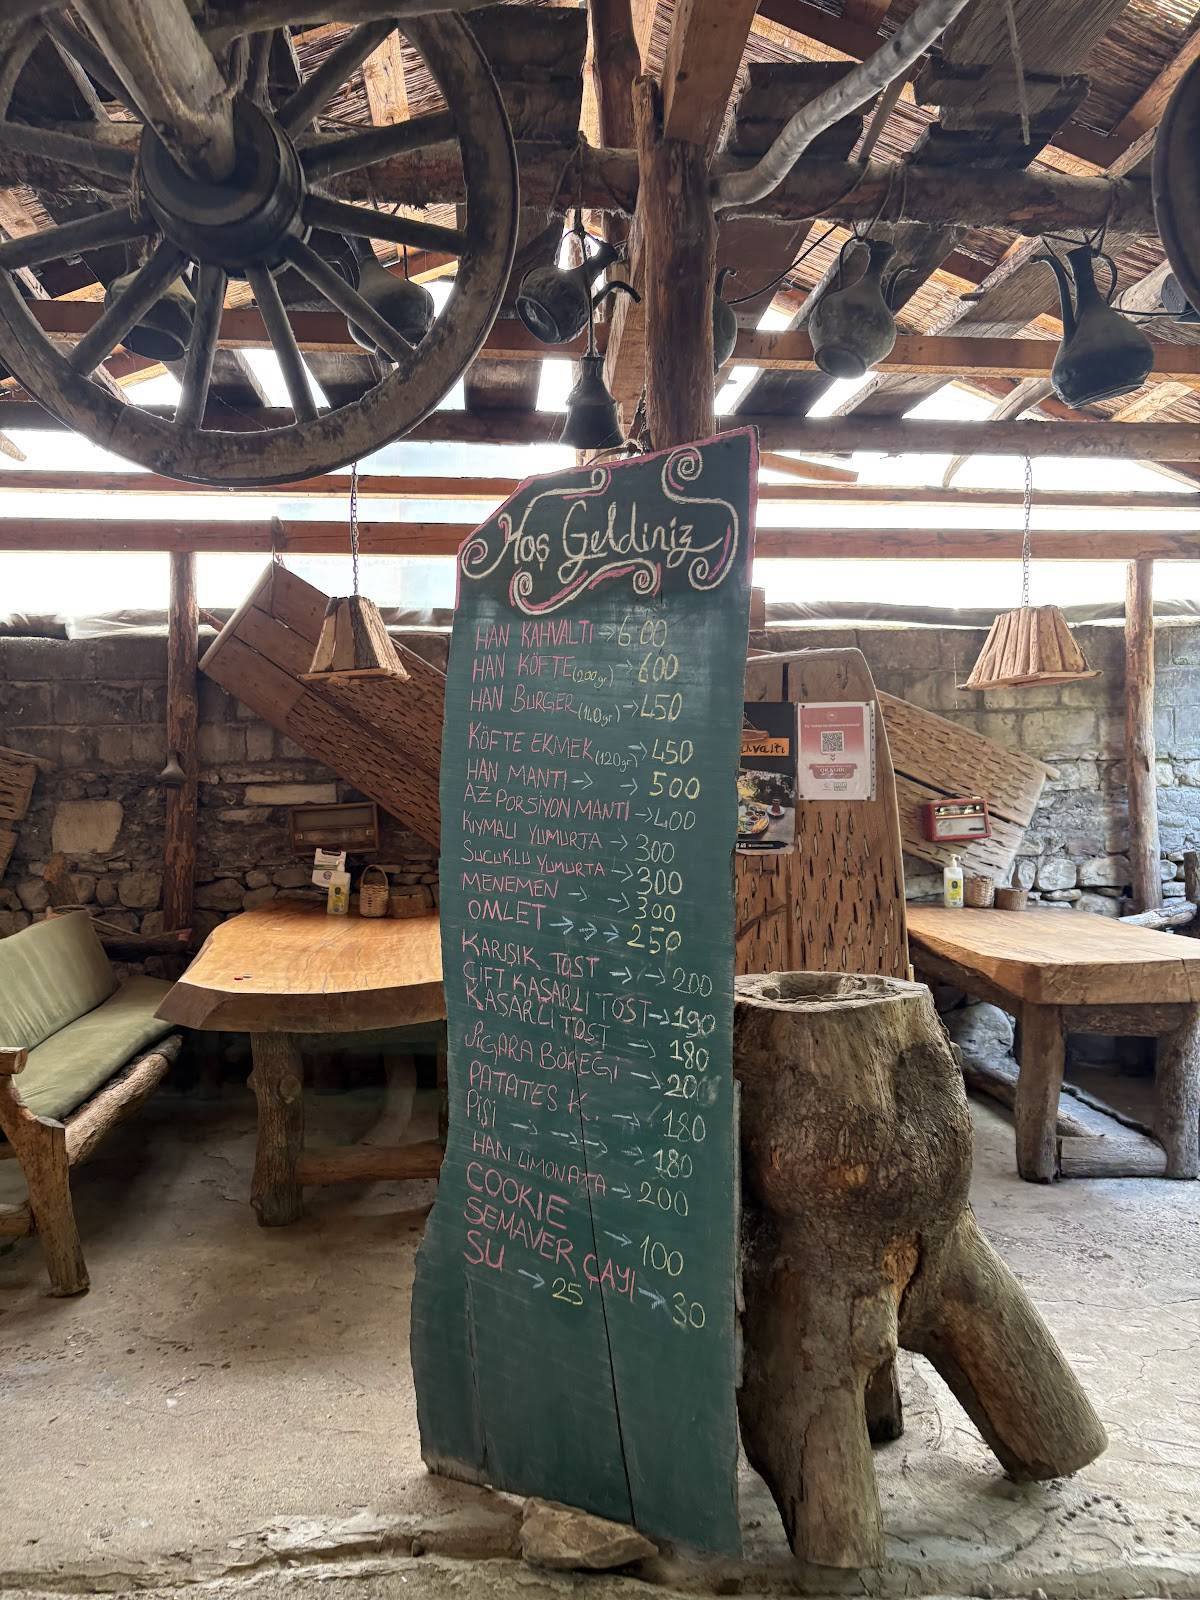 Hoş Geldiniz
HAN KAHVALTI → 600
HAN KÖFTE (200gr) → 600
HAN BURGER (140gr) → 450
KÖFTE EKMEK (120gr) → 450
HAN MANTI → → 500
AZ PORSİYON MANTI → 400
KIYMALI YUMURTA → 300
SUCUKLU YUMURTA → 300
MENEMEN → → 300
OMLET →→→ 250
KARIŞIK TOST → → 200
ÇİFT KAŞARLI TOST → 190
KAŞARLI TOST → 180
SİGARA BÖREĞİ → 200
PATATES K. → 180
PİŞİ → → → → 180
HAN LİMONATA → 200
COOKIE → 100
SEMAVER ÇAYI → 30
SU → 25